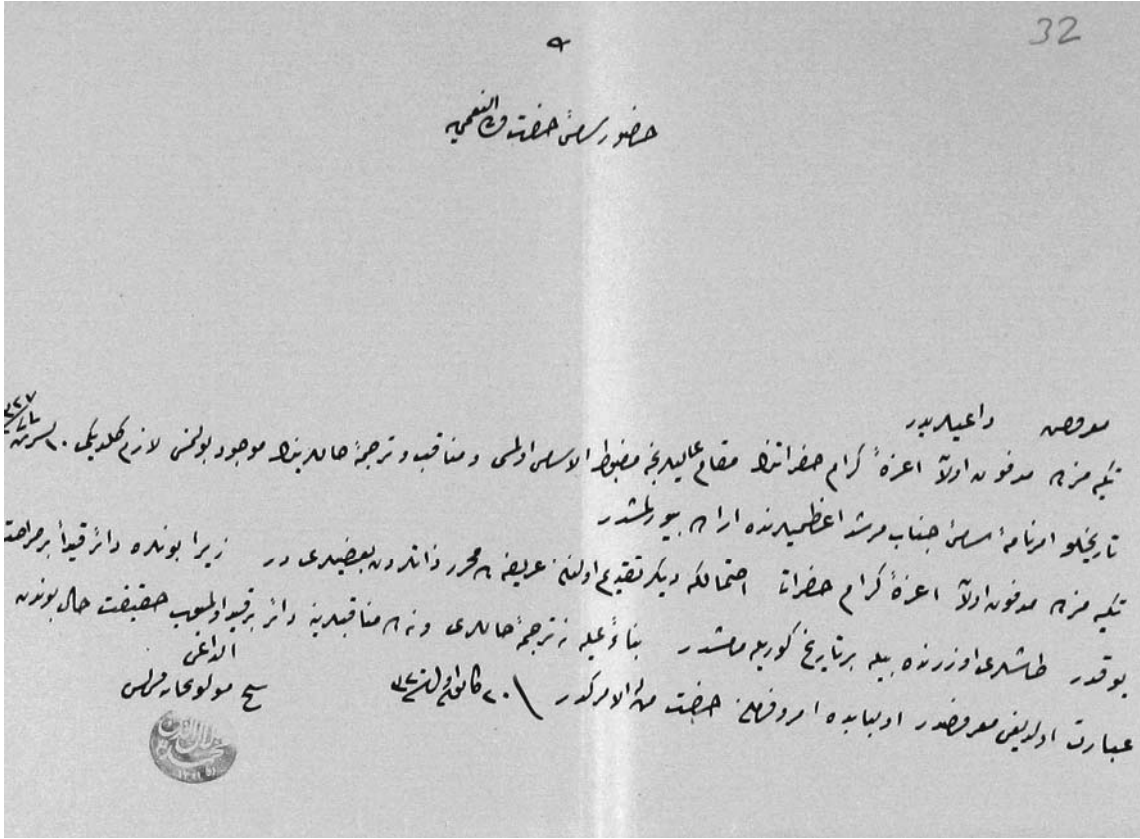 32
حضور سامئ حضرت ولی النعمی
معروض داعیلریدر
تکیه مزده مدفون اولان اعزهٔ كرام حضراتنك مقام عالیلرنجه مضبوط الاسامی اولمسی و مناقب و ترجمهٔ حاللرینك موجود بولنمسی لازم كلدیكی ٢٠
تاریخلو امرنامهٔ سامئ جناب مرشد اعظمیلرنده اراده بیورلمشدر
تکیه مزده مدفون اولان اعزهٔ كرام حضراتی احتمالكه دیكر تقدیم اولنان عریضه ده محرر ذاتلردن بعضیلری در زیرا بونلره دائر قیوداً بر صراحت
یوقدر طاشلری اوزرنده بیله بر تاریخ كوریله مامشدر بناءً علیه نه ترجمهٔ حاللری و نه ده مناقبلرینه دائر بر قید اولمیوب حقیقت حال بوندن
عبارت اولدیغی معروضدر اولبابده امر و فرمان حضرت من له الامركدر ٢٠ كانون
الداعی
شیخ مولویخانه